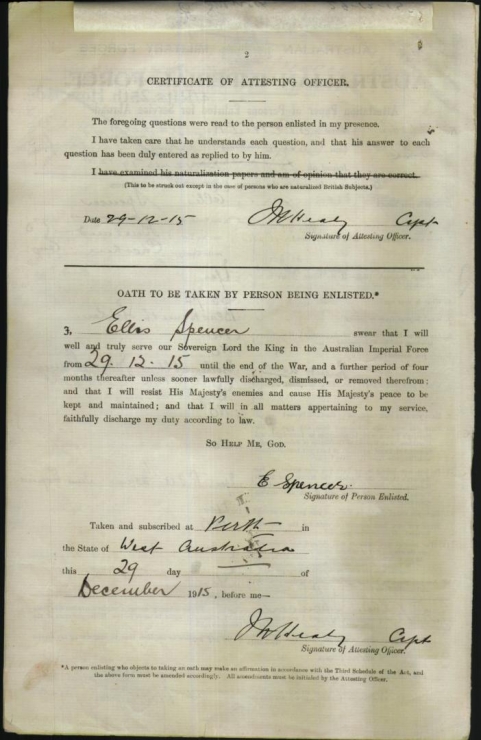 2
CERTIFICATE OF ATTESTING OFFICER.
The foregoing questions were read to the person enlisted in my presence.
I have taken care that he understands each question, and that his answer to each
question has been duly entered as replied to by him.
I have examined his naturalisation papers and am of opinion that they are correct.
(This to be struck out except in the case of persons who are naturalized British Subjects.)
Date 29-12-15 Healy Capt
Signature of Attesting Officer.
OATH TO BE TAKEN BY PERSON BEING ENLISTED.*
3. Ellis Spencer swear that I will
well and truly serve our Sovereign Lord the King in the Australian Imperial Force
from 29.12.15 until the end of the War, and a further period of four
months thereafter unless sooner lawfully discharged, dismissed, or removed therefrom;
and that I will resist His Majesty's enemies and cause His Majesty's peace to be
kept and maintained; and that I will in all matters appertaining to my service,
faithfully discharge my duty according to law.
SO HELP ME, GOD.
E Spencer.
Signature of Person Enlisted.
Taken and subscribed at Perth in
the State of West Australia
this 29 day of
December 1915, before me—
Healy Capt
Signature of Attesting Officer.
*A person enlisting who objects to taking an oath may make an affirmation in accordance with the Third Schedule of the Act, and
the above form must be amended accordingly. All amendments must be initialed by the Attesting Officer.